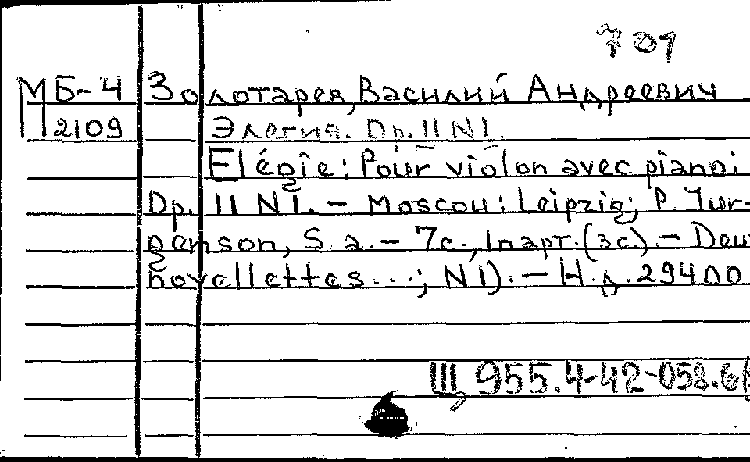 701
МБ-4 Золотарев, Василий Андреевич
2109 Элегия. Op. 11 N 1.
Elégie: Pour violon avec piano:
Op. 11 N 1. – Moscou: Leipzig; P. Jur-
genson, S. a. – 7с., 1парт. (3с). – Deux
novellettes...; N 1). – Н. д. 29400
Щ 955.4-42-058.6